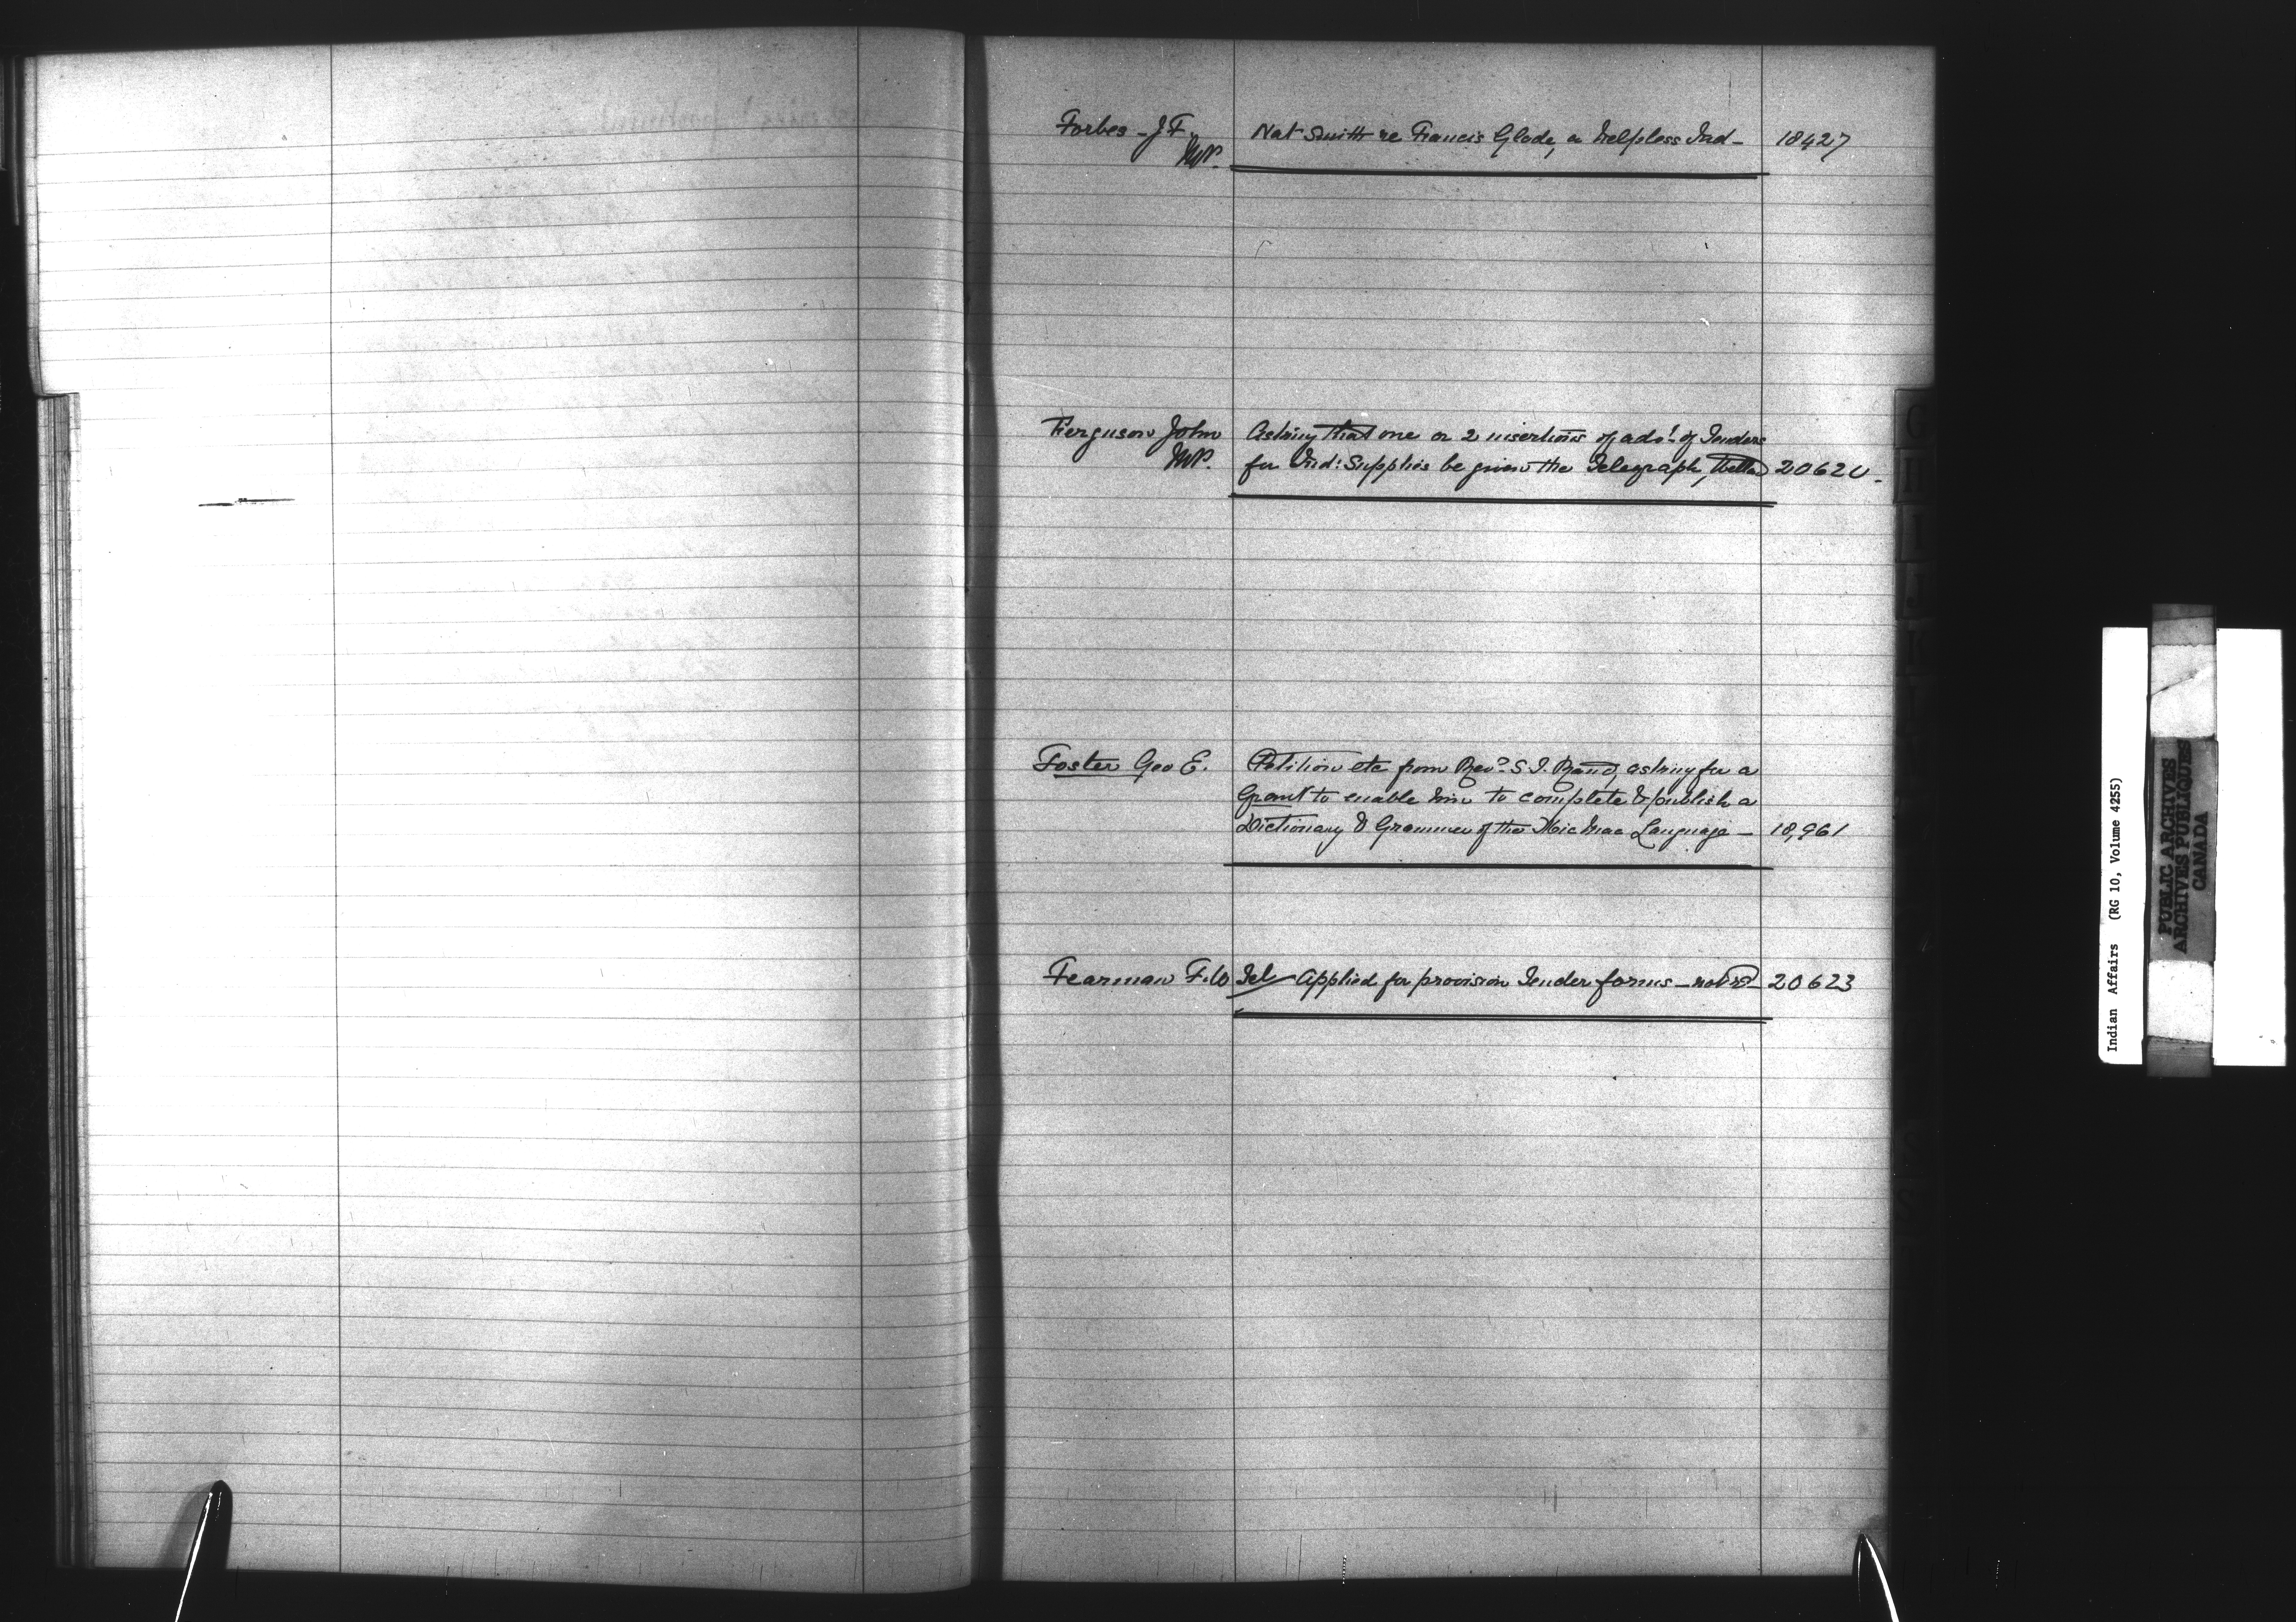 Forbes - J F. Nat Smith re Francis Glode, a helpless Ind - 18427
MP.
Ferguson John Asking that one or 2 insertions of advt. of Tenders
MP. for Ind: Supplies be given the Telegraph, 2062
Foster Geo E. Petition etc from Revd. S. T. Rand, asking for a
Grant to enable him to complete & publish a
Dictionary & Grammer of the Mic Mac Language - 18,961
Fearman F. W Tel - Applied for provision Tender forms - not recd 20623
G
H
I
J
K
L
Indian Affairs (RG 10, Volume 4255)
PUBLIC ARCHIVES
ARCHIVES PUBLIQUES
CANADA